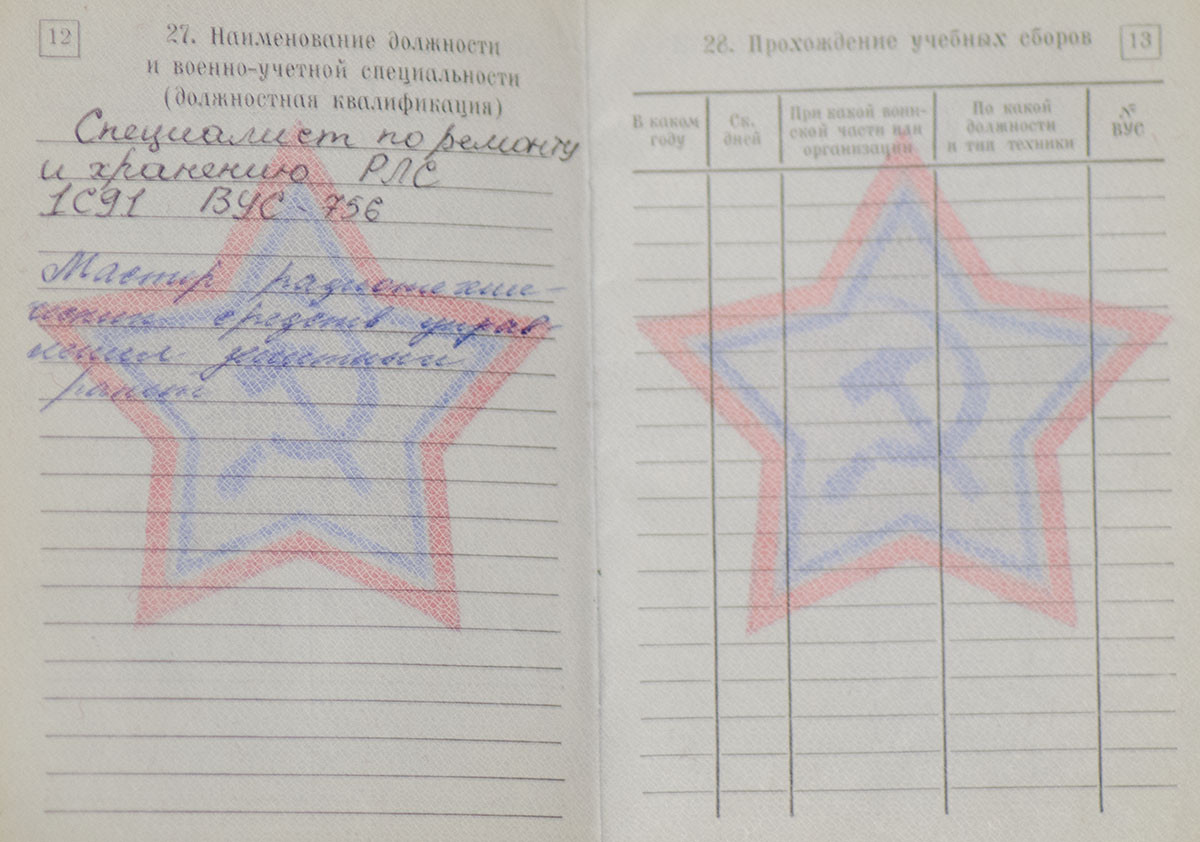 12
27. Наименование должности
и военно-учетной специальности
(должностная квалификация)
Специалист по ремонту
и хранению РЛС
1С91 ВУС - 756
Мастер радиотехни-
ческих средств управ-
ления зенитными
28. Прохождение учебных сборов
13
В каком
году
Ск.
дней
При какой воин-
ской части или
организации
По какой
должности
и тип техники
№
ВУС